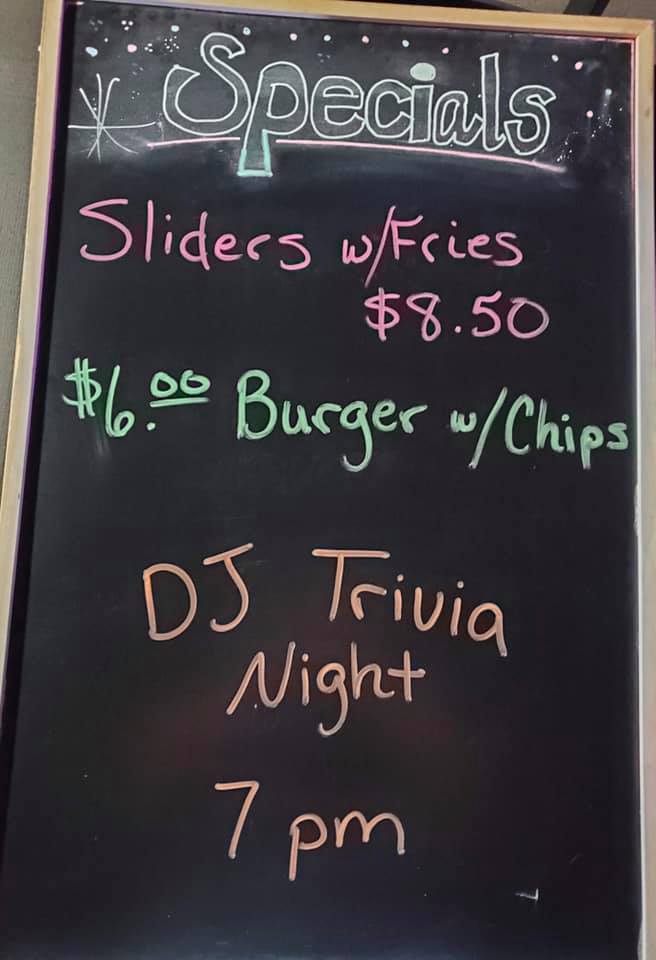 Specials
Sliders w/Fries
$8.50
$6.00 Burger w/Chips
DJ Trivia
Night
7 pm